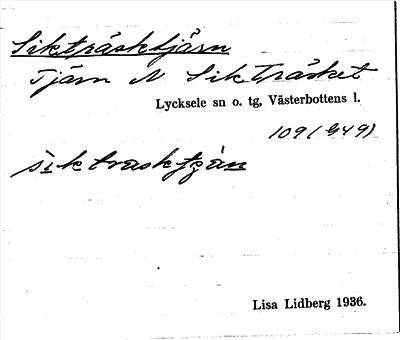 Sikträsktjärn
Tjärn N Sikträsket
Lycksele sn o. tg, Västerbottens l.
109 (949)
siktrasktjän
Lisa Lidberg 1936.